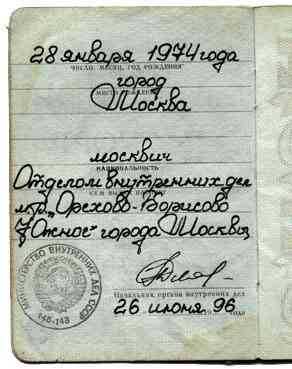 28 января 1974 года
число, месяц, год рождения
город
место рождения
Москва
москвич
национальность
кем выдан паспорт
Отделом внутренних дел
м/р „Орехово-Борисово
Южное" города Москвы
МИНИСТЕРСТВО ВНУТРЕННИХ ДЕЛ СССР
148-143
Начальник органа внутренних дел
26 июня 96
года